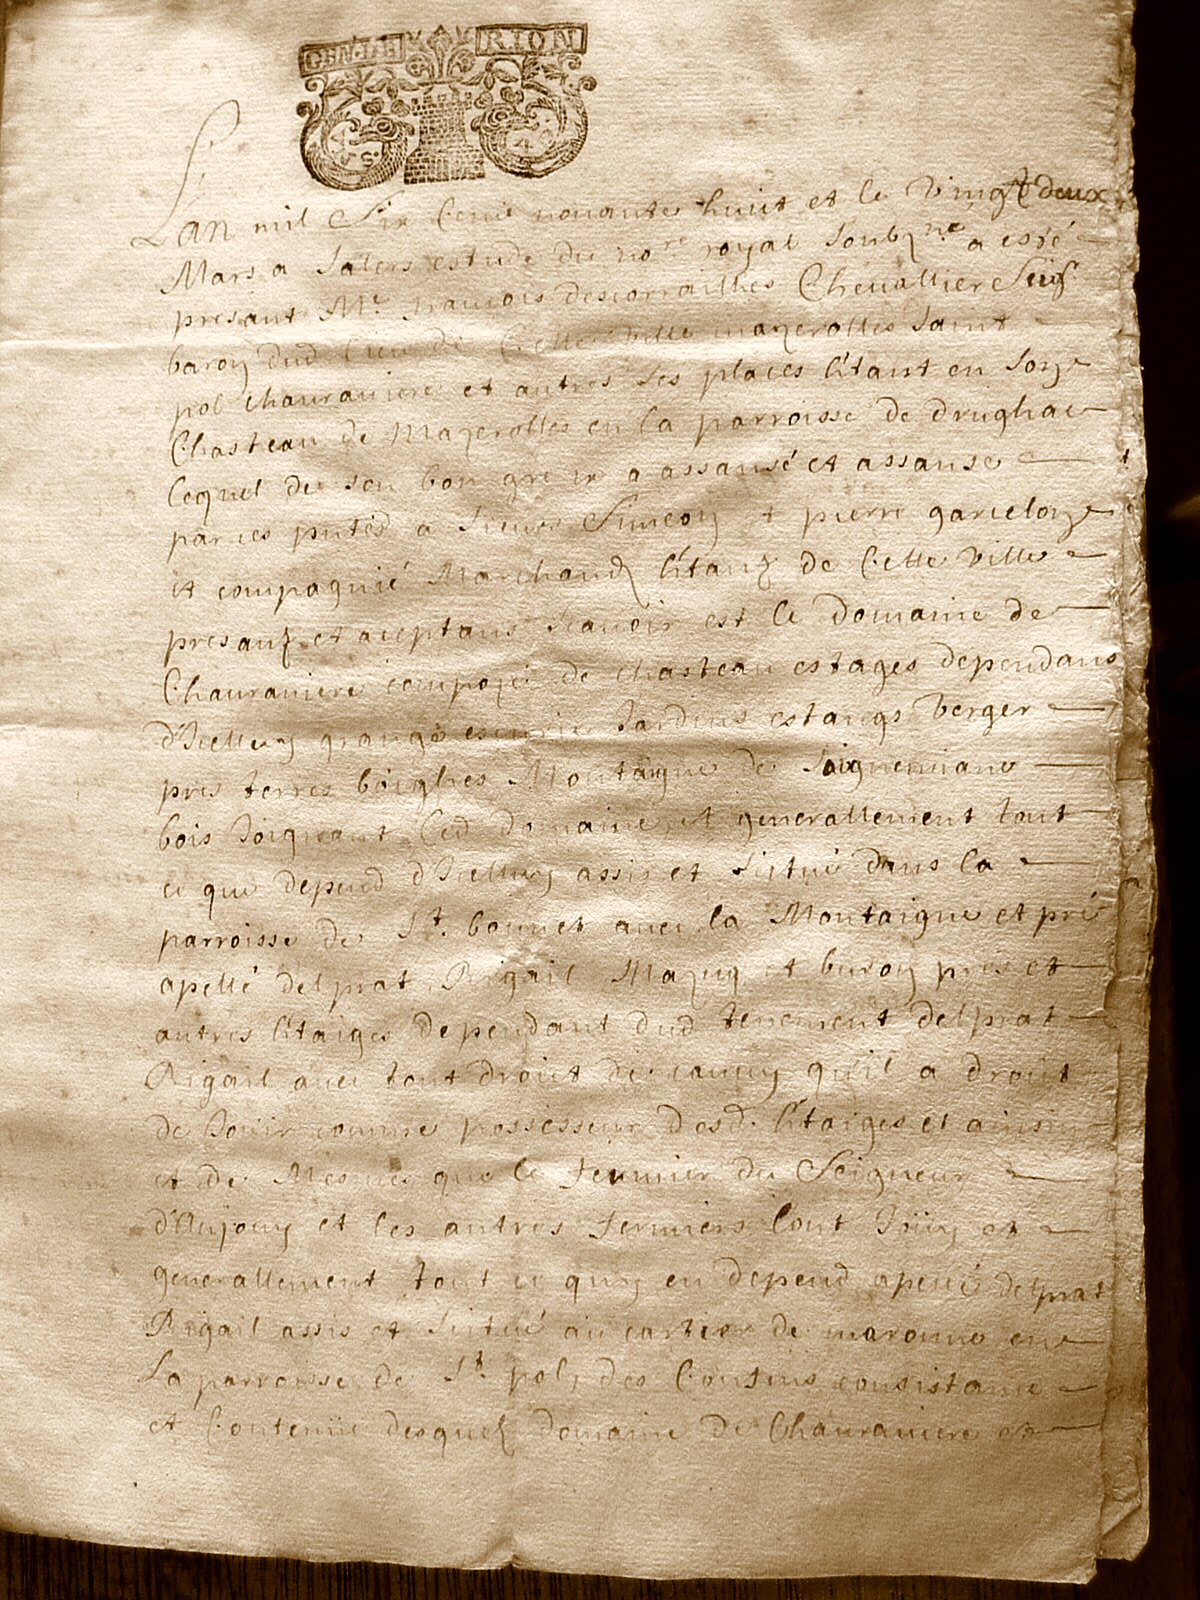 GEN DE RION
L'an mil Six Cens nonante huit et le vingt deux
Mars a Salers estude du no.re royal Soubz.ne a esté
presant M.e francois descorrailhes Chevallier Seig.r
baron dud lieu de Cette ville mazerolles Saint
pol chauraniere et autres ses places h'itant en Son
Chasteau de Mazerolles en la parroisse de drughac
lequel de son bon gre a assansé et assanse
par ces pntes a Sieurs Simeon & pierre garcelon
et compagnié Marchandz h'itanz de Cette ville
presanz et aceptans Scavoir est le domaine de
Chauraniere compozé de chasteau estages dependans
d'Icelluy grange escurie Jardins estangs verger
pres terres boighes Montaigne de
bois Joignant Led domaine et generallement tout
ce que depend d'Icelluy assis et Sittué dans la
parroisse de S.t bonnet avec la Montaigne et pré
apellé delprat Rigail Mazuq et buron pres et
autres h'itaiges dependant dud tenement delprat
Rigail avec tout droit de qu'il a droit
de Joüir comme possesseur desd. h'itaiges et ainsin
et de Mesmes que le fermier du Seigneur
d'Anjouy et les autres fermiers l'ont Joüy et
generallement tout ce quy en depend apellé delprat
Rigail assis et Sittué au cartier de maronne en
La parroisse de S.t pol, des Confins consistance
et Contenüe desquelz domaine de Chauraniere et